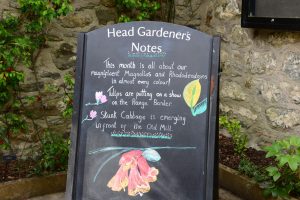 Head Gardener's
Notes
This month is all about our
magnificent Magnolias and Rhododendrons
in almost every colour!
Tulips are putting on a show
on the "Range" Border
Skunk Cabbage is emerging
in front of the Old Mill